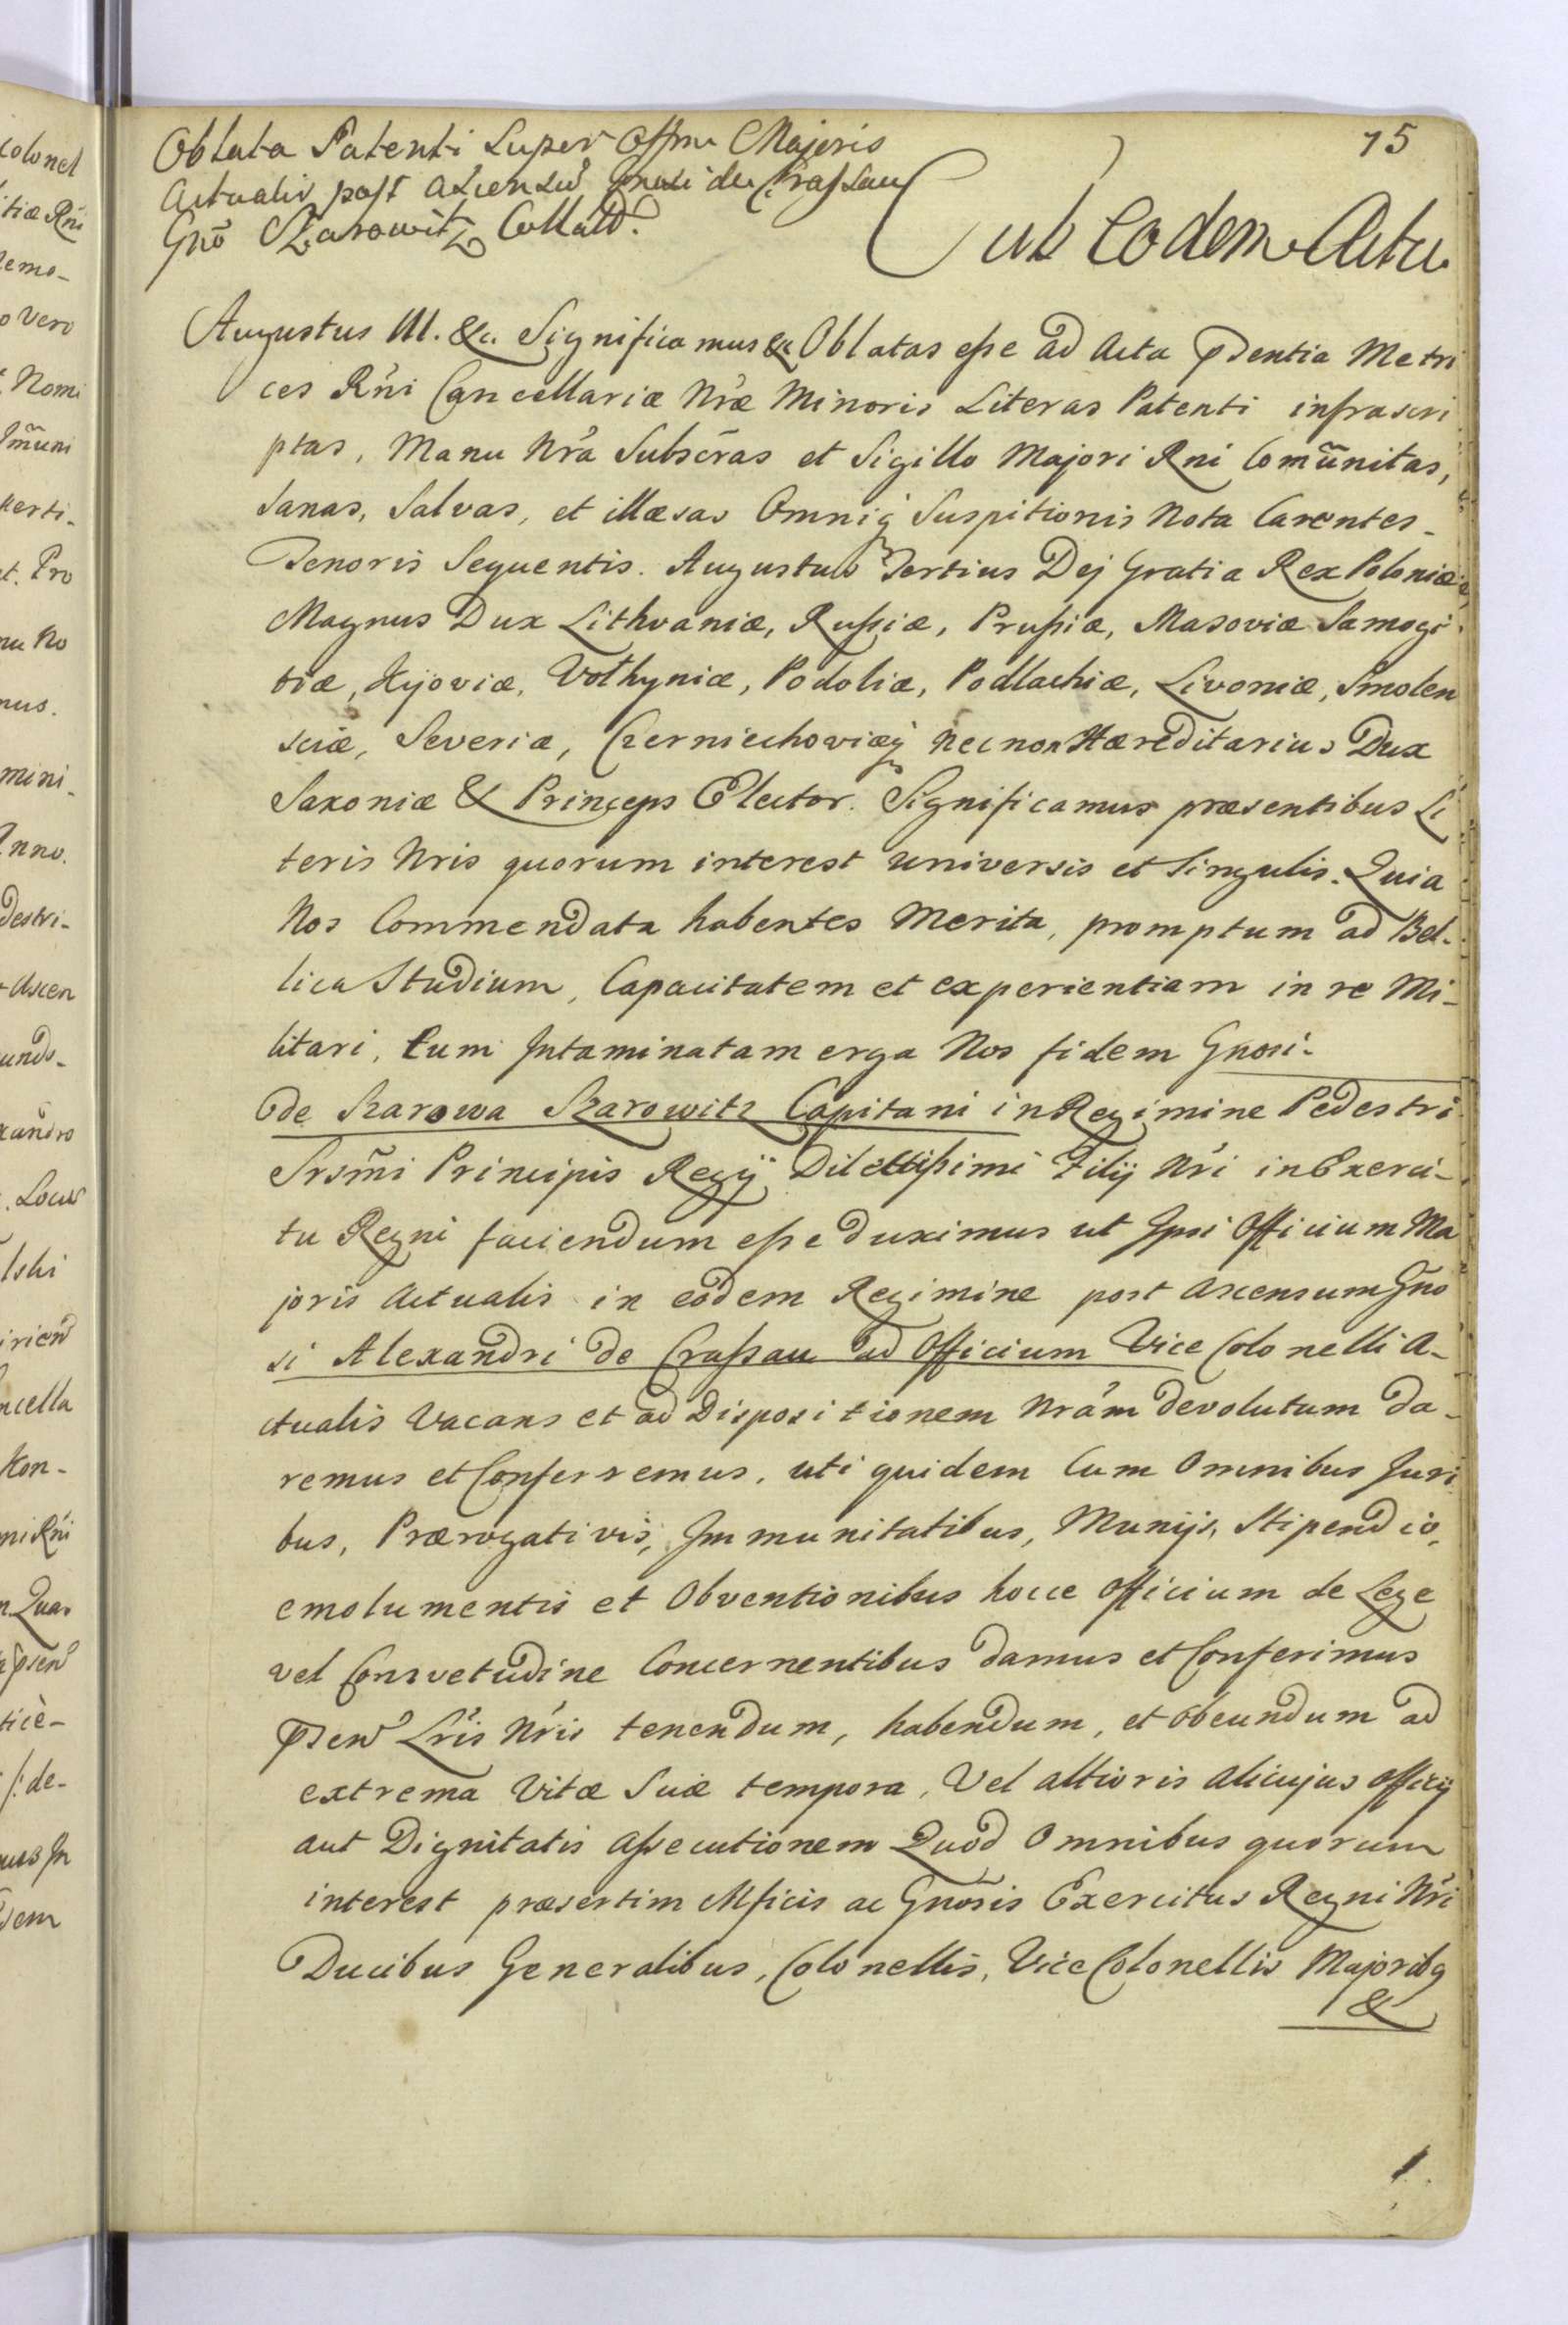 75
Oblata Patenti Super Offm Majoris
Actualis post ascensũ Gnosi de Crassau
Gnõ Szarowitz Collatd.
Sub Eodem Actu
Augustus III. &c. Significamus &c Oblatas esse ad Acta pdentia Metri
ces Rñi Cancellariæ Nræ Minoris Literas Patenti infrascri
ptas, Manu Nrâ Subscras et Sigillo Majori Rni Comũnitas,
Sanas, Salvas, et illæsas Omniq Suspitionis Nota Carentes_
Tenoris Sequentis. Augustus Tertius Dej Gratia Rex Poloniæ
Magnus Dux Lithvaniæ, Russiæ, Prussiæ, Masoviæ Samogi
tiæ, Kijoviæ, Volhyniæ, Podoliæ, Podlachiæ, Livoniæ, Smolen
sciæ, Severiæ, Czerniechoviæq necnon Hæreditarius Dux
Saxoniæ & Princeps Elector. Significamus præsentibus Li
teris Nris quorum interest universis et Singulis. Quia
Nos Commendata habentes Merita, promptum ad Bel-
lica Studium, Capacitatem et experientiam in re Mi-
litari, tum Intaminatam erga Nos fidem Gnosi-
de Szarowa Szarowitz Capitani in Regimine Pedestri
Srsm̃i Principis Regij Dilectissimi Filij Nri in Exerci-
tu Regni faciendum esse duximus ut Ipsi Officium Ma
joris Actualis in eodem Regimine post ascensum Gno
si Alexandri de Crassau ad Officium Vice Colonelli A-
ctualis Vacans et ad Dispositionem Nrâm devolutum da-
remus et Conferremus, uti quidem Cum Omnibus Juri
bus, Prærogativis, Immunitatibus, Munijs, Stipendio,
emolumentis et Obventionibus hocce Officium de Lege
vel Consvetudine Concernentibus damus et Conferimus
psen Lris Nris tenendum, habendum, et obeundum ad
extrema Vitæ Suæ tempora, Vel altioris alicujus officij
aut Dignitatis assecutionem Quod Omnibus quorum
interest præsertim Mficis ac Gnosis Exercitus Regni Nri
Ducibus Generalibus, Colonellis, Vice Colonellis Majoribq
&